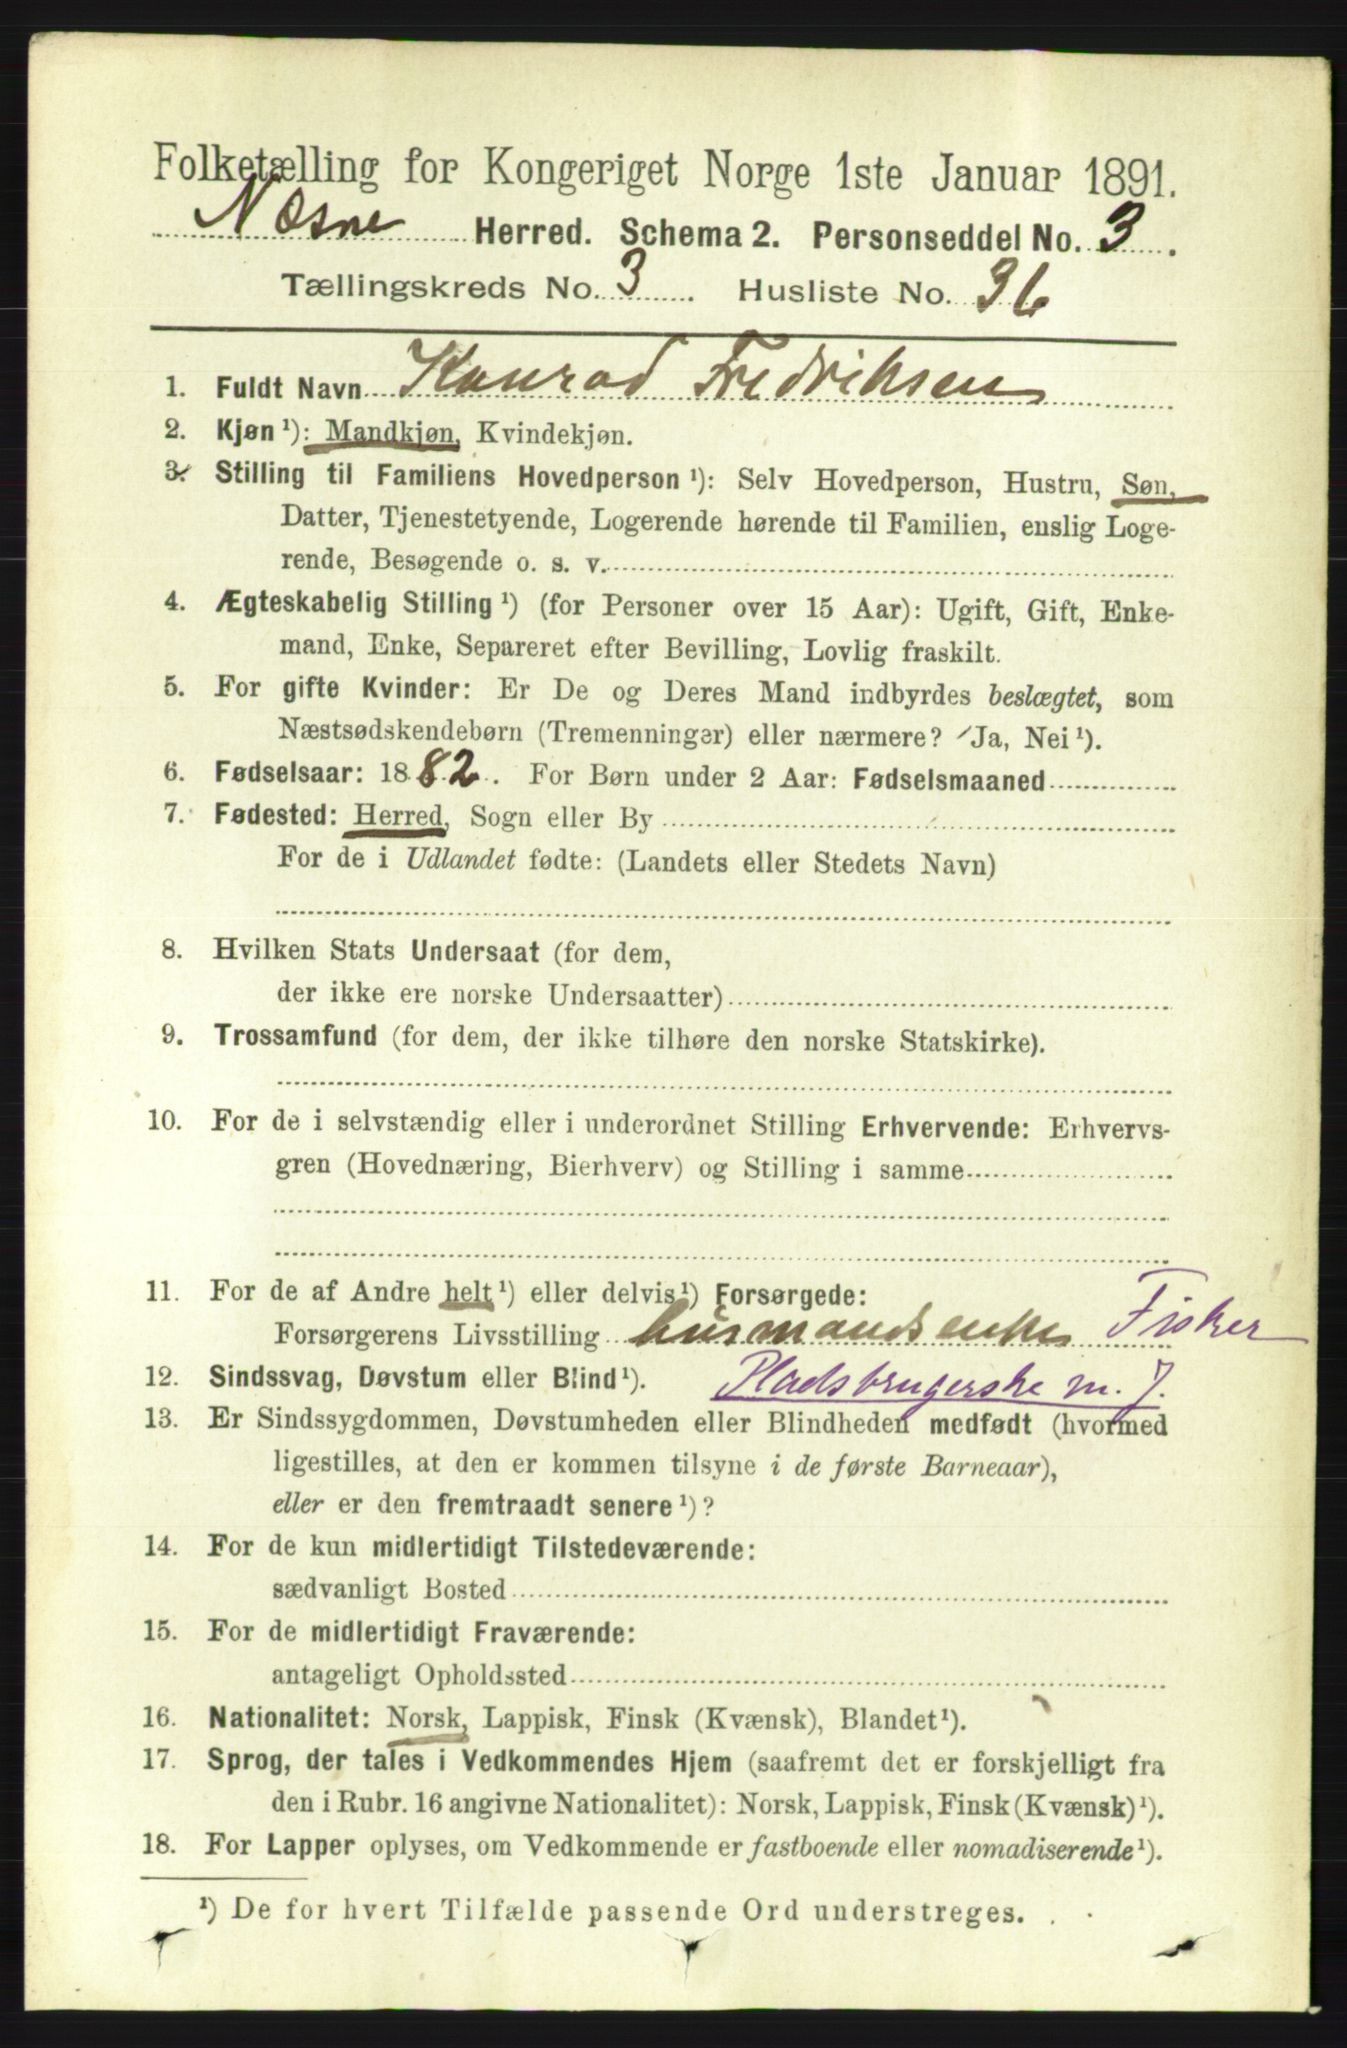 Folketælling for Kongeriget Norge 1ste Januar 1891.
Næsne Herred. Schema 2. Personseddel No. 3.
Tællingskreds No. 3. Husliste No. 36
1. Fuldt Navn Konrad Fredriksen
2. Kjøn ¹): Mandkjøn, Kvindekjøn.
3. Stilling til Familiens Hovedperson ¹): Selv Hovedperson, Hustru, Søn,
Datter, Tjenestetyende, Logerende hørende til Familien, enslig Loge-
rende, Besøgende o. s. v.
4. Ægteskabelig Stilling ¹) (for Personer over 15 Aar): Ugift, Gift, Enke-
mand, Enke, Separeret efter Bevilling, Lovlig fraskilt.
5. For gifte Kvinder: Er De og Deres Mand indbyrdes beslægtet, som
Næstsødskendebørn (Tremenninger) eller nærmere? Ja, Nei ¹).
6. Fødselsaar: 1882. For Børn under 2 Aar: Fødselsmaaned
7. Fødested: Herred, Sogn eller By
For de i Udlandet fødte: (Landets eller Stedets Navn)
8. Hvilken Stats Undersaat (for dem,
der ikke ere norske Undersaatter)
9. Trossamfund (for dem, der ikke tilhøre den norske Statskirke).
10. For de i selvstændig eller i underordnet Stilling Erhvervende: Erhvervs-
gren (Hovednæring, Bierhverv) og Stilling i samme
11. For de af Andre helt ¹) eller delvis ¹) Forsørgede:
Forsørgerens Livsstilling husmandsenke Fisker
12. Sindssvag, Døvstum eller Blind ¹). Pladsbrugerske m. J.
13. Er Sindssygdommen, Døvstumheden eller Blindheden medfødt (hvormed
ligestilles, at den er kommen tilsyne i de første Barneaar),
eller er den fremtraadt senere ¹)?
14. For de kun midlertidigt Tilstedeværende:
sædvanligt Bosted
15. For de midlertidigt Fraværende:
antageligt Opholdssted
16. Nationalitet: Norsk, Lappisk, Finsk (Kvænsk), Blandet ¹).
17. Sprog, der tales i Vedkommendes Hjem (saafremt det er forskjelligt fra
den i Rubr. 16 angivne Nationalitet): Norsk, Lappisk, Finsk (Kvænsk) ¹).
18. For Lapper oplyses, om Vedkommende er fastboende eller nomadiserende ¹).
¹) De for hvert Tilfælde passende Ord understreges.